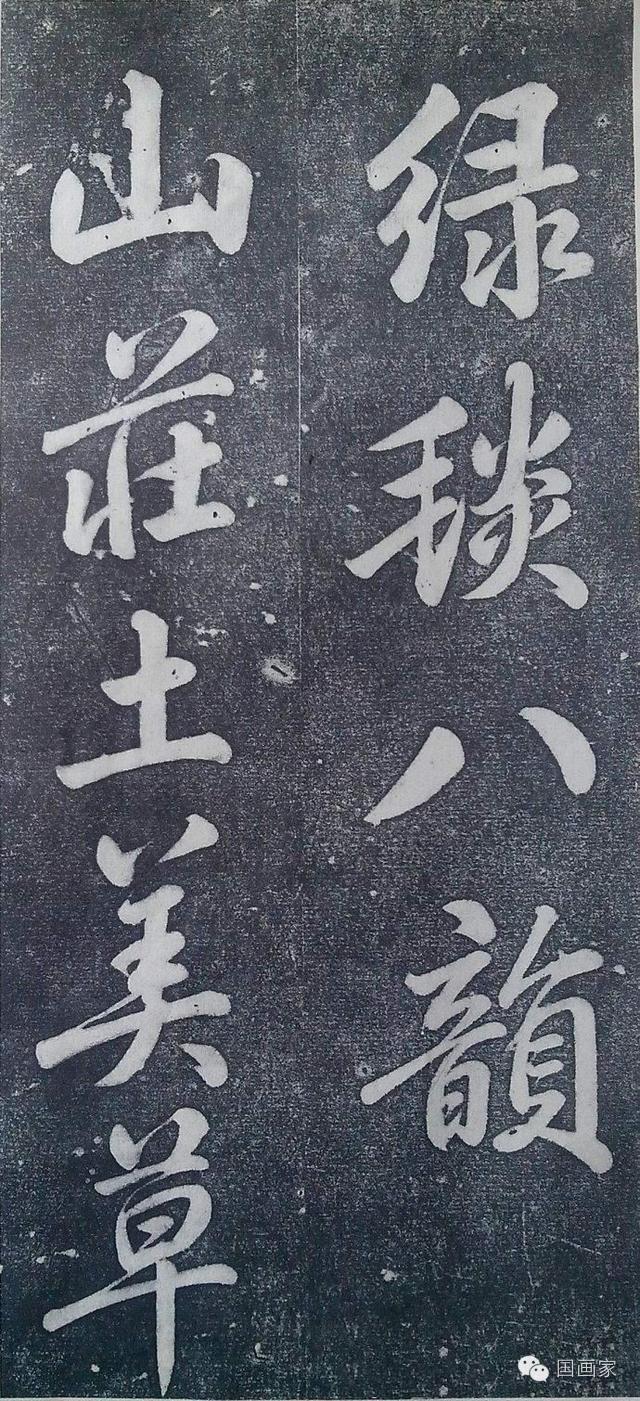 绿毯八韻
山莊土美草
国画家